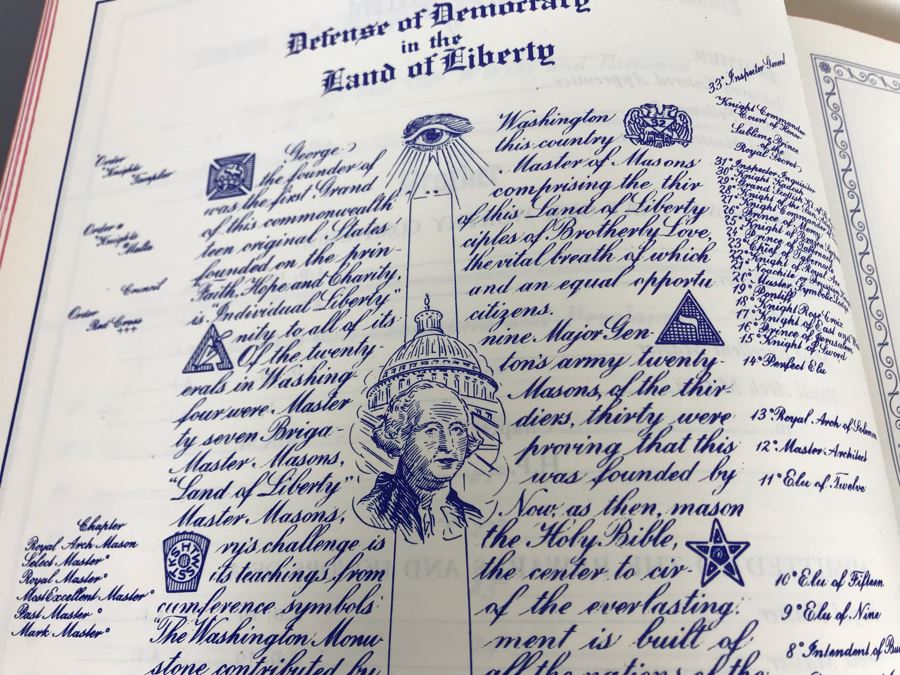 Defense of Democracy
in the
Land of Liberty
George Washington
the founder of this country
was the first Grand Master of Masons
of this commonwealth comprising the thir
teen original States of this Land of Liberty
founded on the prin- ciples of Brotherly Love,
Faith, Hope and Charity, the vital breath of which
is Individual Liberty" and an equal opportu
nity to all of its citizens.
Of the twenty nine Major Gen-
erals in Washing- ton's army twenty
four were Master Masons, of the thir-
ty seven Briga- diers, thirty were
Master Masons, proving that this
"Land of Liberty" was founded by
Master Masons, Now, as then, mason
ry's challenge is the Holy Bible,
its teachings from the center to cir
cumference symbols of the everlasting.
The Washington Monu ment is built of
stone contributed by all the nations of the
32
Order
Knights
Templar
Order of
Knights
Malta
Council
Order
Red Cross
Chapter
Royal Arch Mason
Select Master
Royal Master
Most Excellent Master
Past Master
Mark Master
HTWSSTKS
33° Inspector General
Knight Commander
Court of Honor
Sublime Prince
of the
Royal Secret
31° Inspector Inquisitor
30° Knight Kadosh
29° Grand Scottish Kt. of
28° Knight of the Sun
27° Knight Commander of
26° Prince of Mercy
25° Knight of Brazen
24° Prince of Tabernacle
23° Chief of Tabernacle
22° Knight of Royal Axe
21° Noachite or Prussian
20° Master Symbolic Lodge
19° Pontiff
18° Knight Rose Croix
17° Knight of East and
16° Prince of Jerusalem
15° Knight of Sword
14° Perfect Elu
13° Royal Arch of Solomon
12° Master Architect
11° Elu of Twelve
10° Elu of Fifteen
9° Elu of Nine
8° Intendent of Bu